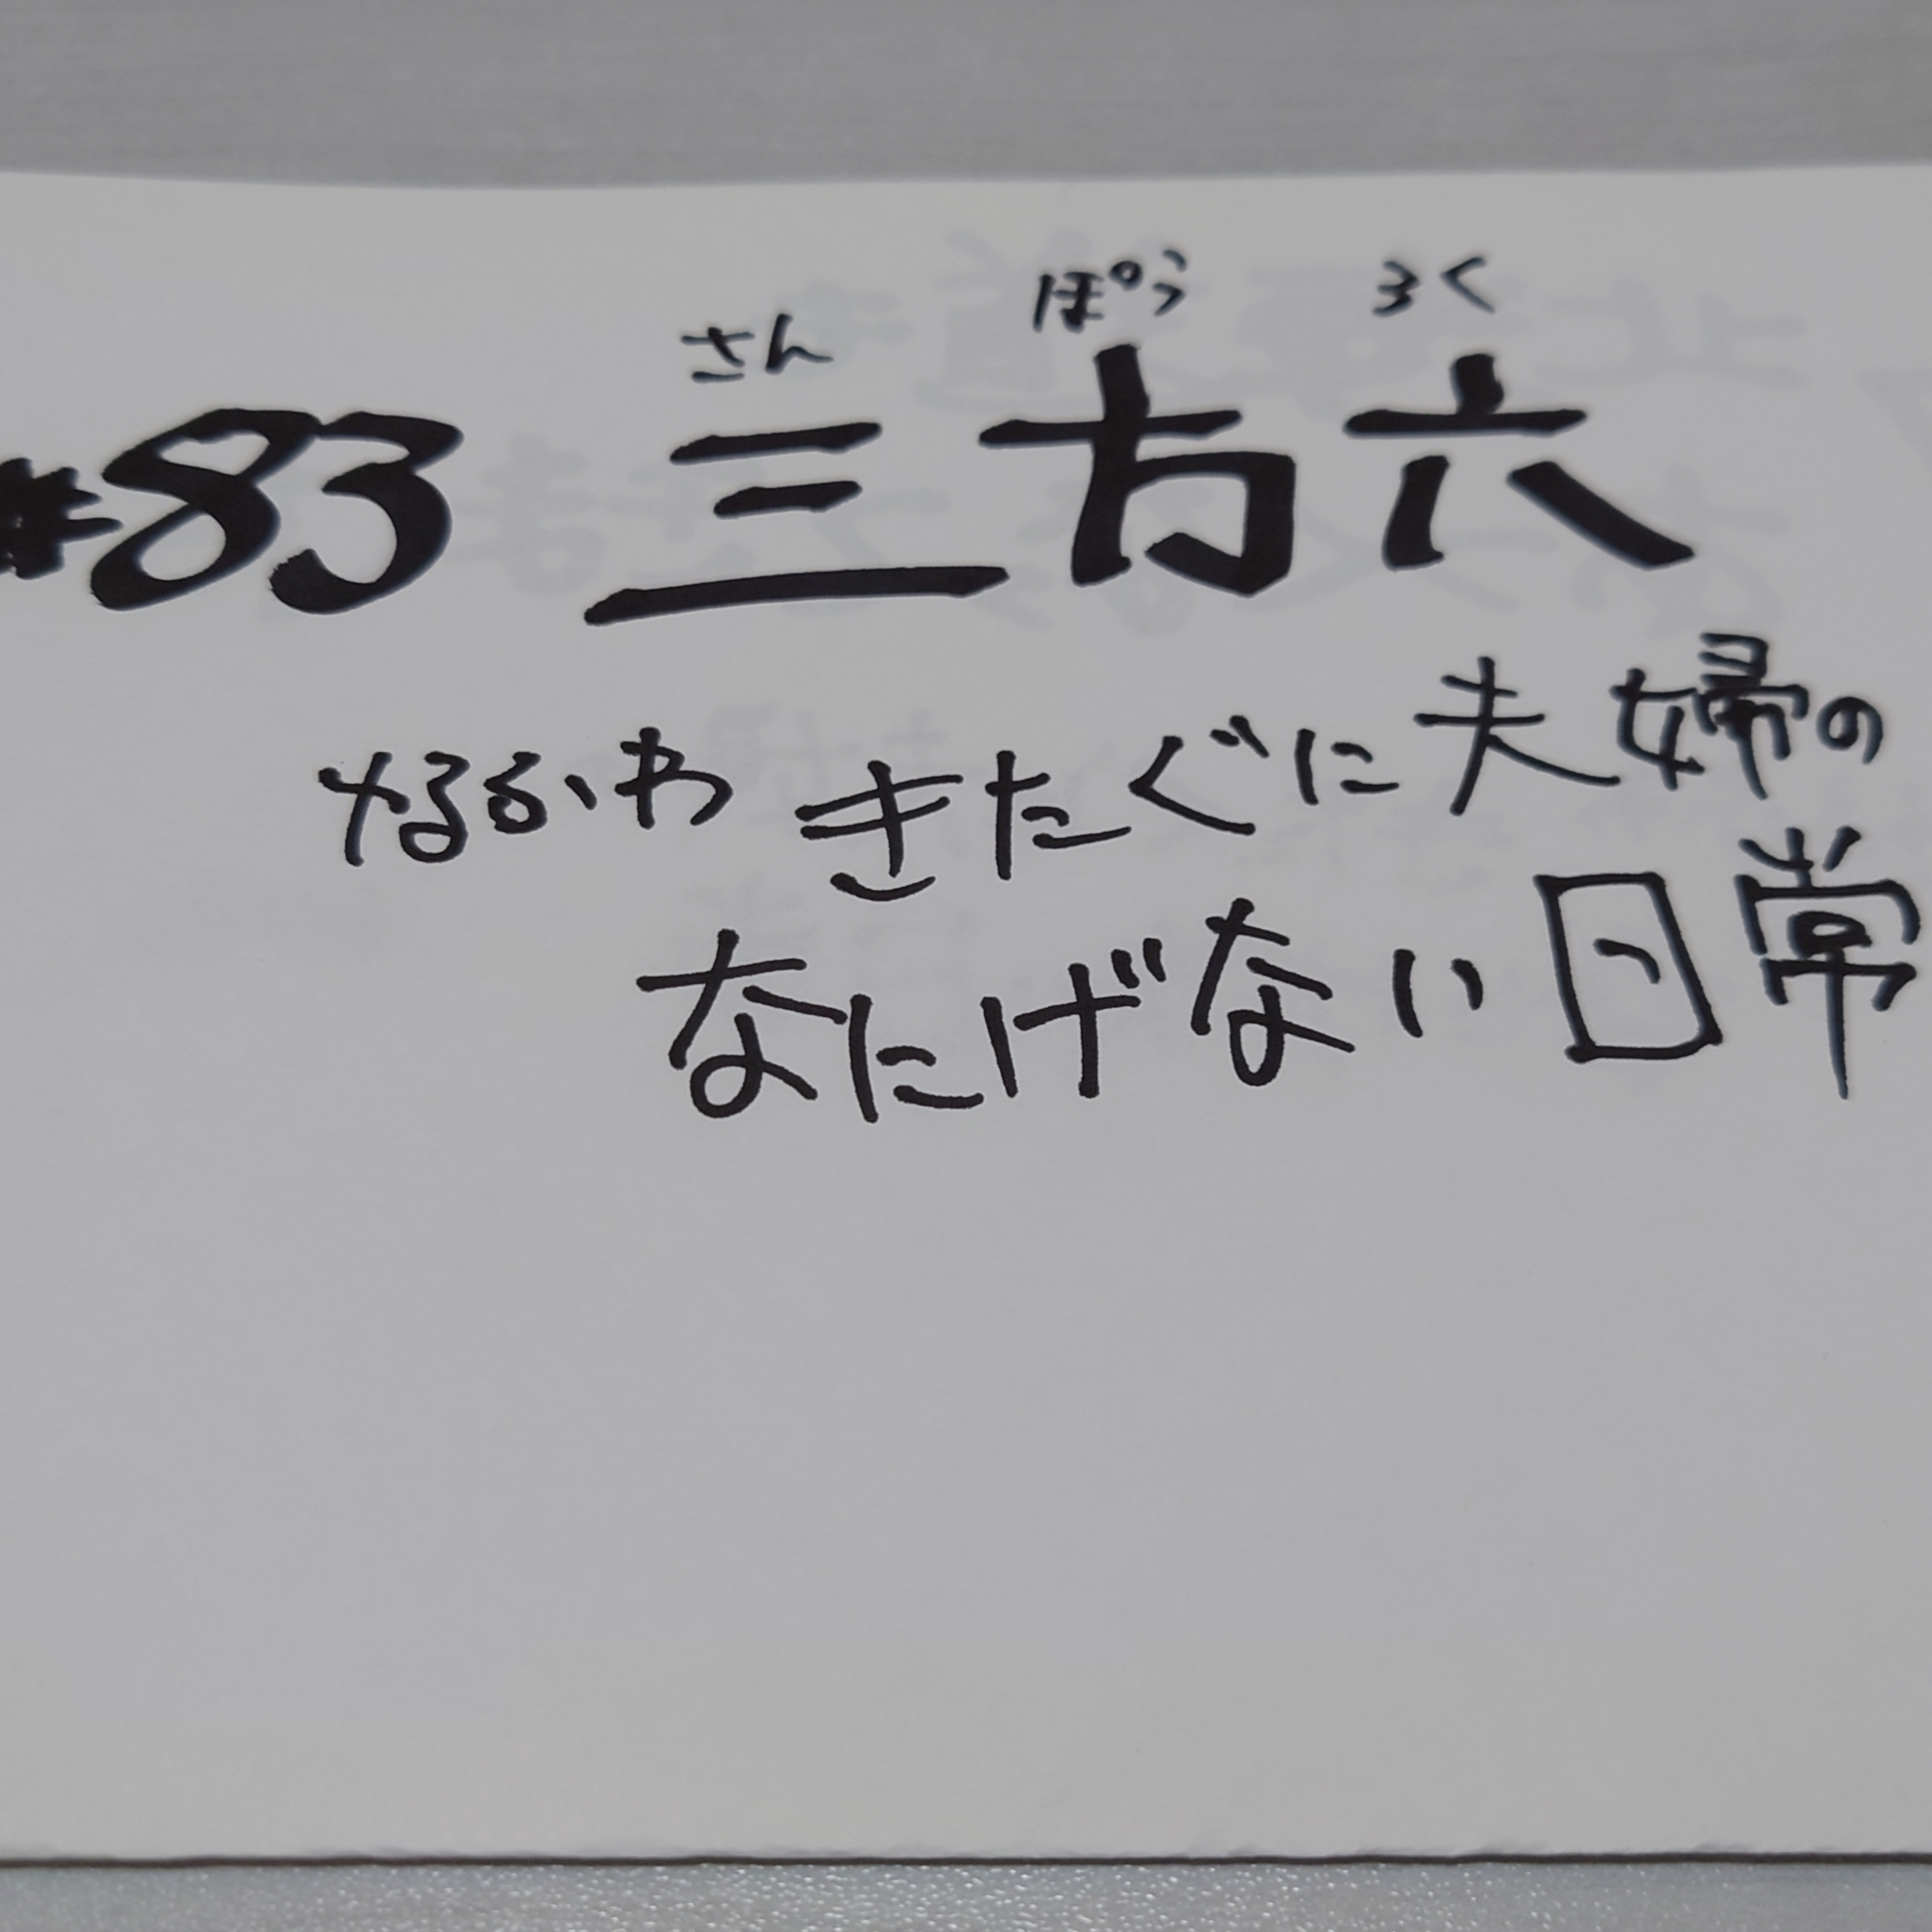 さん ぽう ろく
#83 三方六
ゆるふわ きたぐに夫婦の
なにげない日常